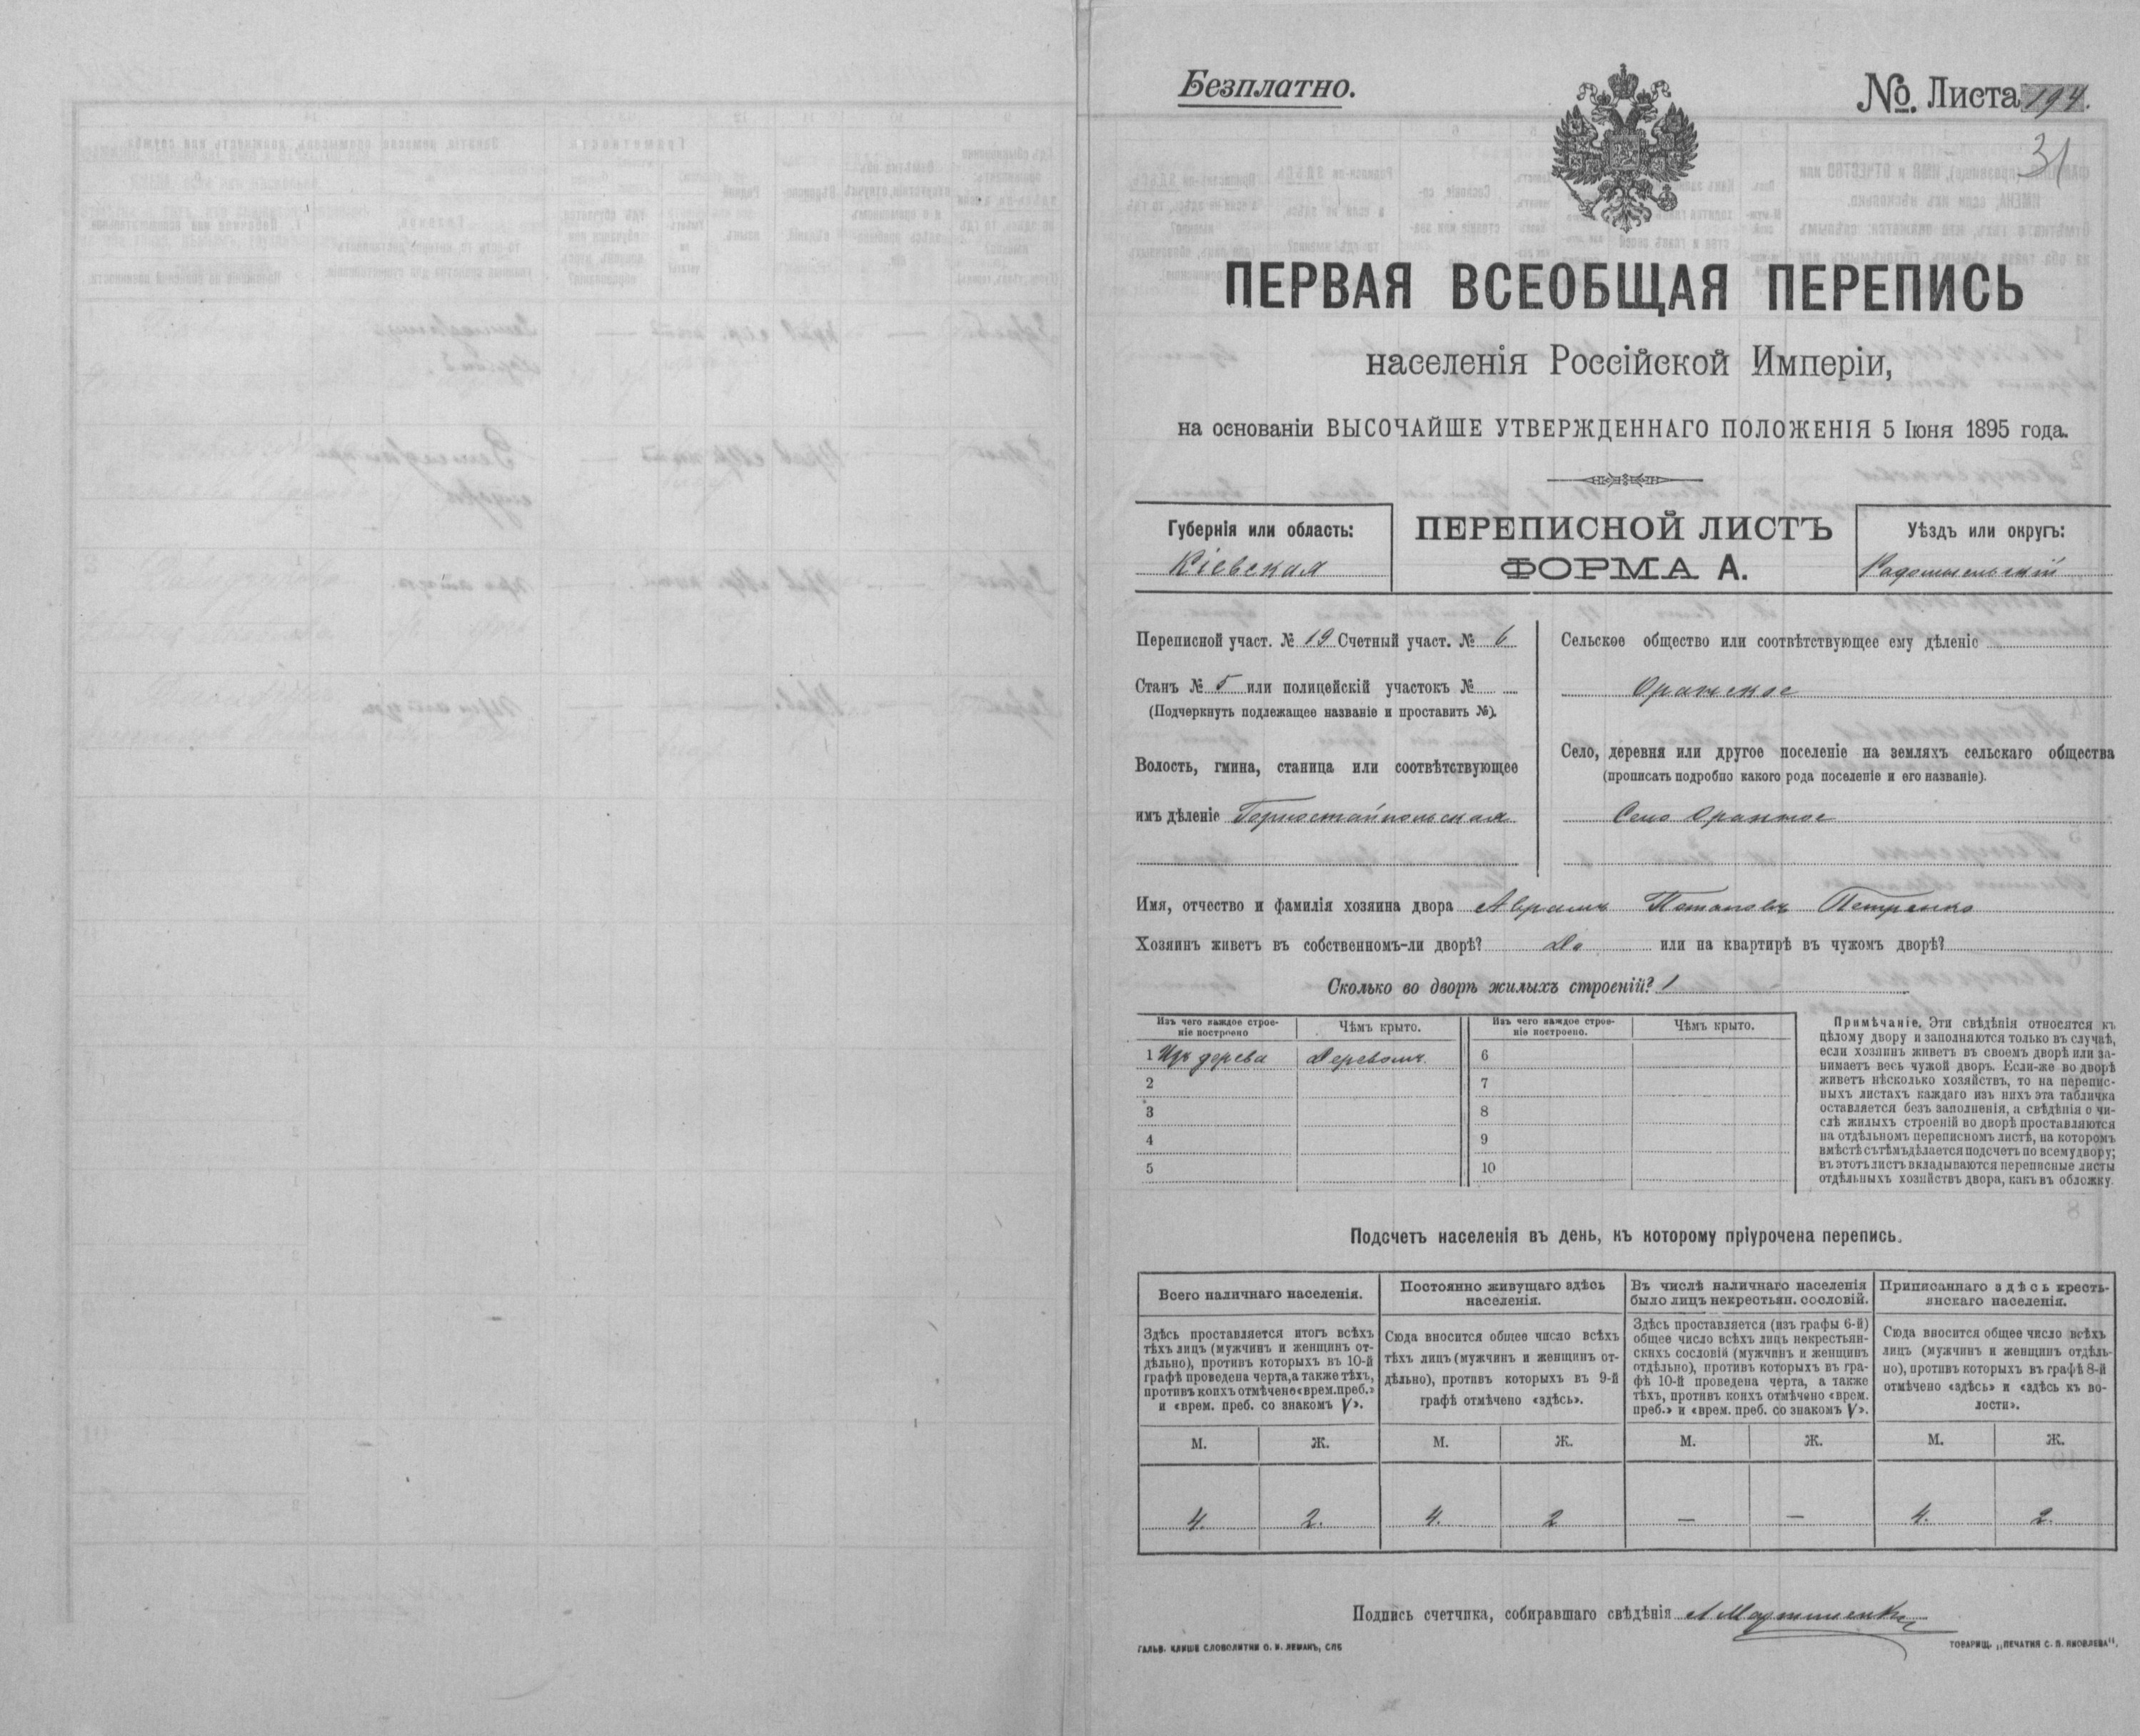 Безплатно.
№. Листа 194.
31
ПЕРВАЯ ВСЕОБЩАЯ ПЕРЕПИСЬ
населенія Россійской Имперіи,
на основаніи ВЫСОЧАЙШЕ УТВЕРЖДЕННАГО ПОЛОЖЕНІЯ 5 Іюня 1895 года.
Губернія или область:
Кіевская
ПЕРЕПИСНОЙ ЛИСТЪ
ФОРМА А.
Уѣздъ или округъ:
Радомысльскій
Переписной участ. № 19 Счетный участ. № 6
Станъ № 5 или полицейскій участокъ №
(Подчеркнуть подлежащее названіе и проставить №).
Волость, гмина, станица или соотвѣтствующее
имъ дѣленіе Горностайпольская
Сельское общество или соотвѣтствующее ему дѣленіе
Оранское
Село, деревня или другое поселеніе на земляхъ сельскаго общества
(прописать подробно какого рода поселеніе и его названіе).
Село Оранное
Имя, отчество и фамилія хозяина двора Аврамъ Потаповъ Петренко
Хозяинъ живетъ въ собственномъ-ли дворѣ? Да или на квартирѣ въ чужомъ дворѣ?
Сколько во дворѣ жилыхъ строеній? 1
Изъ чего каждое строе-
ніе построено
Чѣмъ крыто.
Изъ чего каждое строе-
ніе построено.
Чѣмъ крыто.
1 Изъ дерева Деревомъ.
2
3
4
5
6
7
8
9
10
Примѣчаніе. Эти свѣдѣнія относятся къ
цѣлому двору и заполняются только въ случаѣ,
если хозяинъ живетъ въ своемъ дворѣ или за-
нимаетъ весь чужой дворъ. Если-же во дворѣ
живетъ нѣсколько хозяйствъ, то на перепис-
ныхъ листахъ каждаго изъ нихъ эта табличка
оставляется безъ заполненія, а свѣдѣнія о чи-
слѣ жилыхъ строеній во дворѣ проставляются
на отдѣльномъ переписномъ листѣ, на которомъ
вмѣстѣ съ тѣмъ дѣлается подсчетъ по всему двору;
въ этотъ листъ вкладываются переписные листы
отдѣльныхъ хозяйствъ двора, какъ въ обложку.
Подсчетъ населенія въ день, къ которому пріурочена перепись.
Всего наличнаго населенія.
Здѣсь проставляется итогъ всѣхъ
тѣхъ лицъ (мужчинъ и женщинъ от-
дѣльно), противъ которыхъ въ 10-й
графѣ проведена черта, а также тѣхъ,
противъ коихъ отмѣчено «врем. преб.»
и «врем. преб. со знакомъ V».
Постоянно живущаго здѣсь
населенія.
Сюда вносится общее число всѣхъ
тѣхъ лицъ (мужчинъ и женщинъ от-
дѣльно), противъ которыхъ въ 9-й
графѣ отмѣчено «здѣсь».
Въ числѣ наличнаго населенія
было лицъ некрестьян. сословій.
Здѣсь проставляется (изъ графы 6-й)
общее число всѣхъ лицъ некрестьян-
скихъ сословій (мужчинъ и женщинъ
отдѣльно), противъ которыхъ въ гра-
фѣ 10-й проведена черта, а также
тѣхъ, противъ коихъ отмѣчено «врем.
преб.» и «врем. преб. со знакомъ V».
Приписаннаго здѣсь кресть-
янскаго населенія.
Сюда вносится общее число всѣхъ
лицъ (мужчинъ и женщинъ отдѣль-
но), противъ которыхъ въ графѣ 8-й
отмѣчено «здѣсь» и «здѣсь къ во-
лости».
М. Ж. М. Ж. М. Ж. М. Ж.
4. 2. 4. 2 — — 4. 2.
Подпись счетчика, собиравшаго свѣдѣнія
ГАЛЬВ. КЛИШЕ СЛОВОЛИТНИ О. И. ЛЕМАНЪ, СПБ
ТОВАРИЩ. „ПЕЧАТНЯ С. П. ЯКОВЛЕВА“.